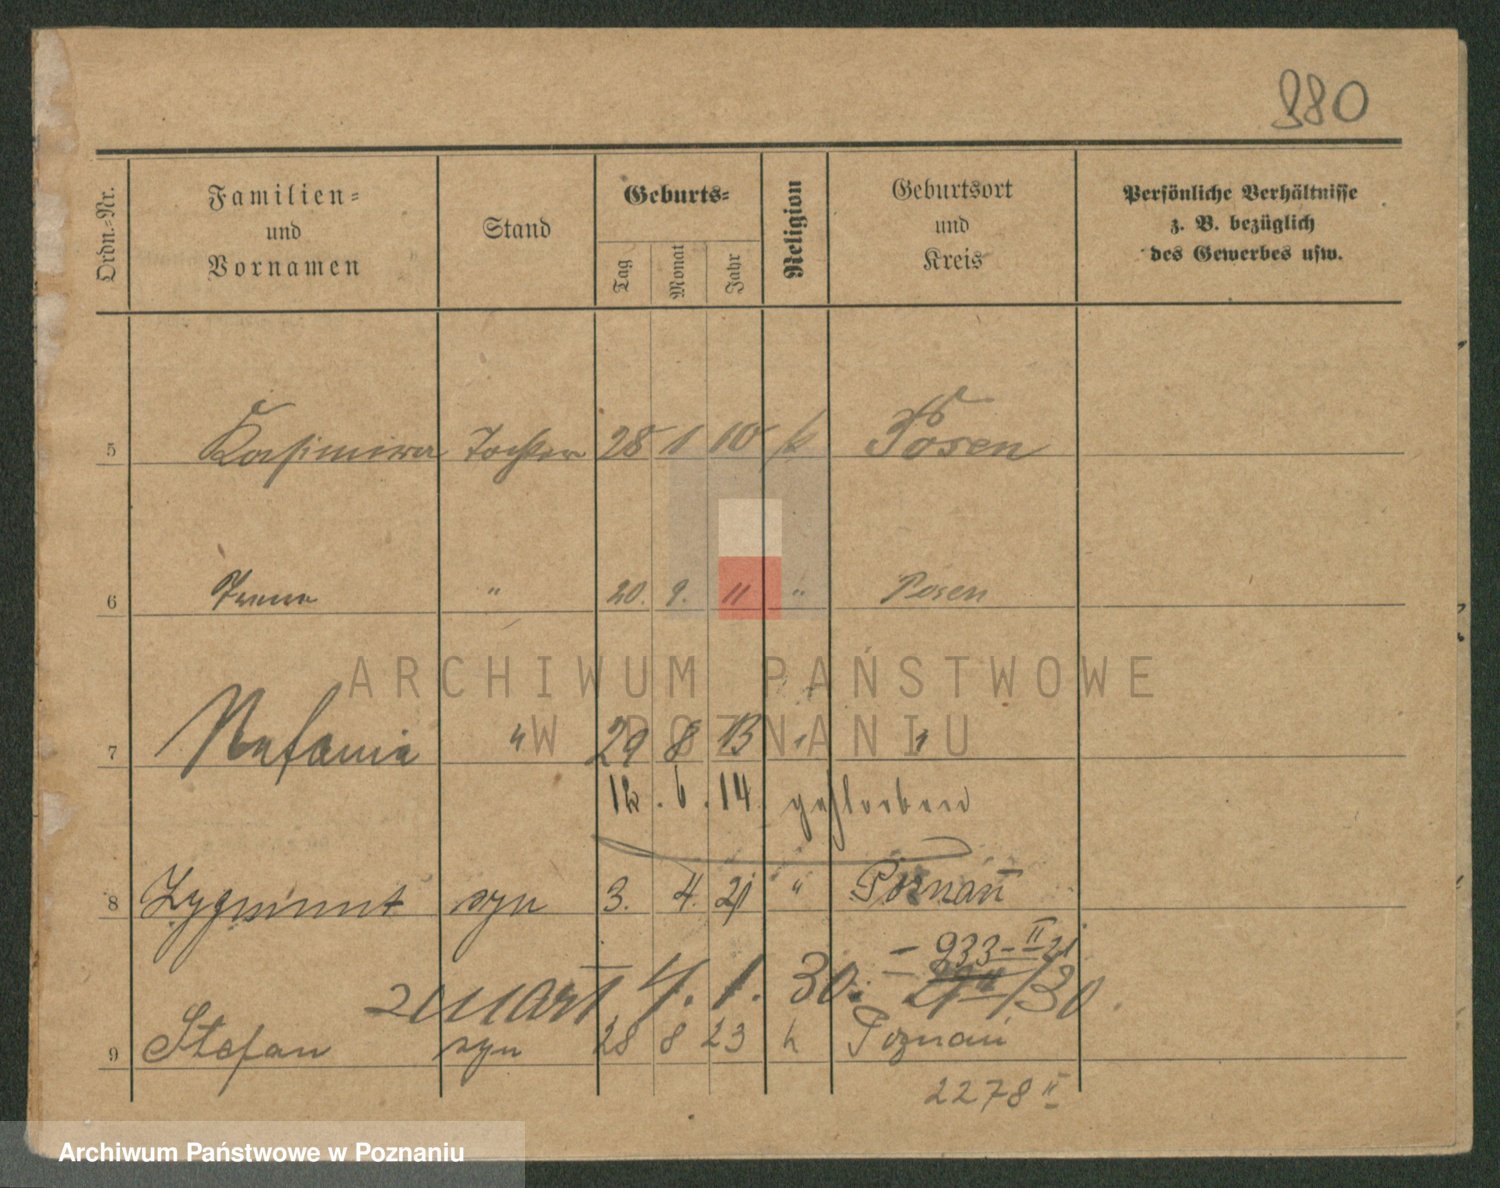 980
Ordn.=Nr.
Familien=
und
Vornamen
Stand
Geburts=
Tag
Monat
Jahr
Religion
Geburtsort
und
Kreis
Persönliche Verhältnisse
z. B. bezüglich
des Gewerbes usw.
5 Kasimira Tochter 28 1 10 k Posen
6 Irena " 20. 9. 11 " Posen
ARCHIWUM PAŃSTWOWE
W POZNANIU
7 Stefania " 29 8 13 " "
12. 6. 14 gestorben
8 Zygmunt syn 3. 4. 21 " Poznań
933 II 21
zmarł 4. 1. 30.
9 Stefan syn 28 8 23 k Poznań
2278 II
Archiwum Państwowe w Poznaniu